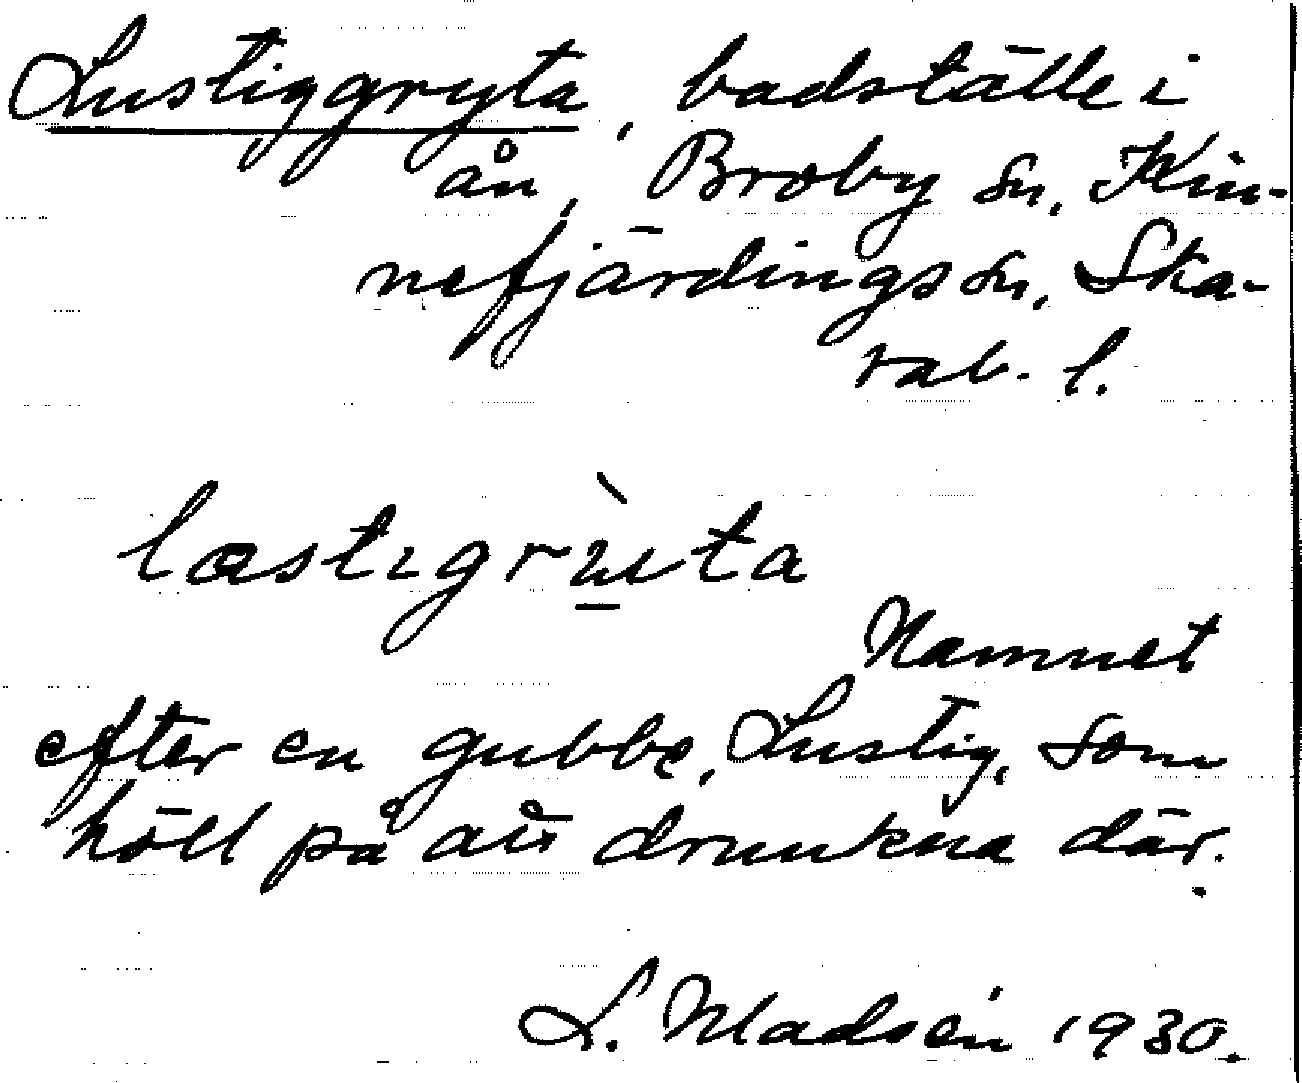 Lustiggryta, badställe i
ån, Broby sn, Kin-
nefjärdings sn, Ska-
rab. l.
læstıgrùta
Namnet
efter en gubbe, Lustig, som
höll på att drunkna där.
L. Madsén 1930.